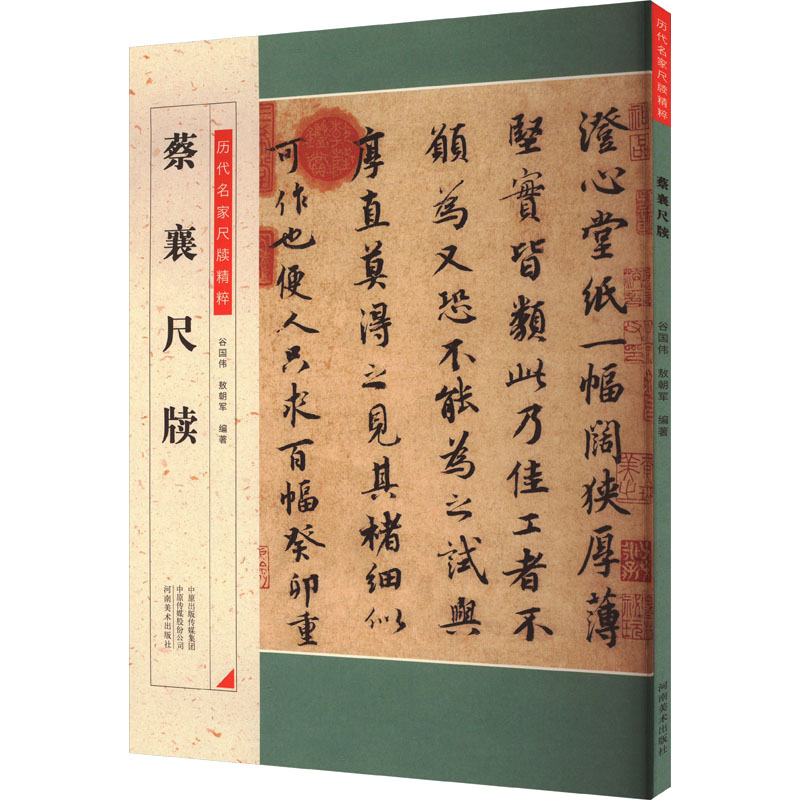 蔡襄尺牍
历代名家尺牍精粹
谷国伟 敖朝军 编著
中原出版传媒集团
中原传媒股份公司
河南美术出版社
澄心堂纸一幅阔狭厚薄
堅實皆類此乃佳工者不
願為又恐不能為之試與
厚直莫得之見其楮細似
可作也便人只求百幅癸卯重
历代名家尺牍精粹
蔡襄尺牍
谷国伟 敖朝军 编著
河南美术出版社